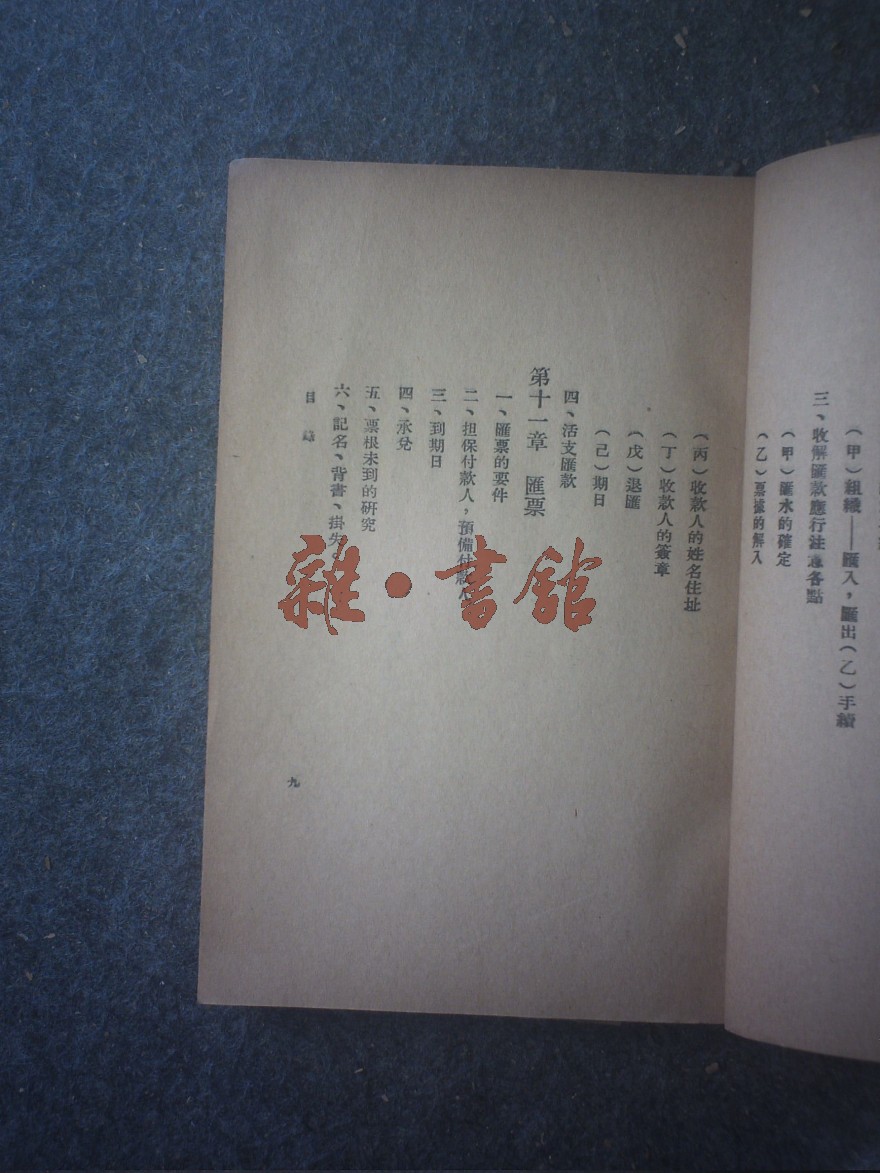 （甲）組織——匯入，匯出（乙）手續
三、收解匯款應行注意各點
（甲）匯水的確定
（乙）票據的解入
（丙）收款人的姓名住址
（丁）收款人的簽章
（戊）退匯
（己）期日
四、活支匯款
第十一章 匯票
一、匯票的要件
二、担保付款人，預備付款人
三、到期日
四、承兌
五、票根未到的研究
六、記名、背書、掛失
目錄
九
雜·書館